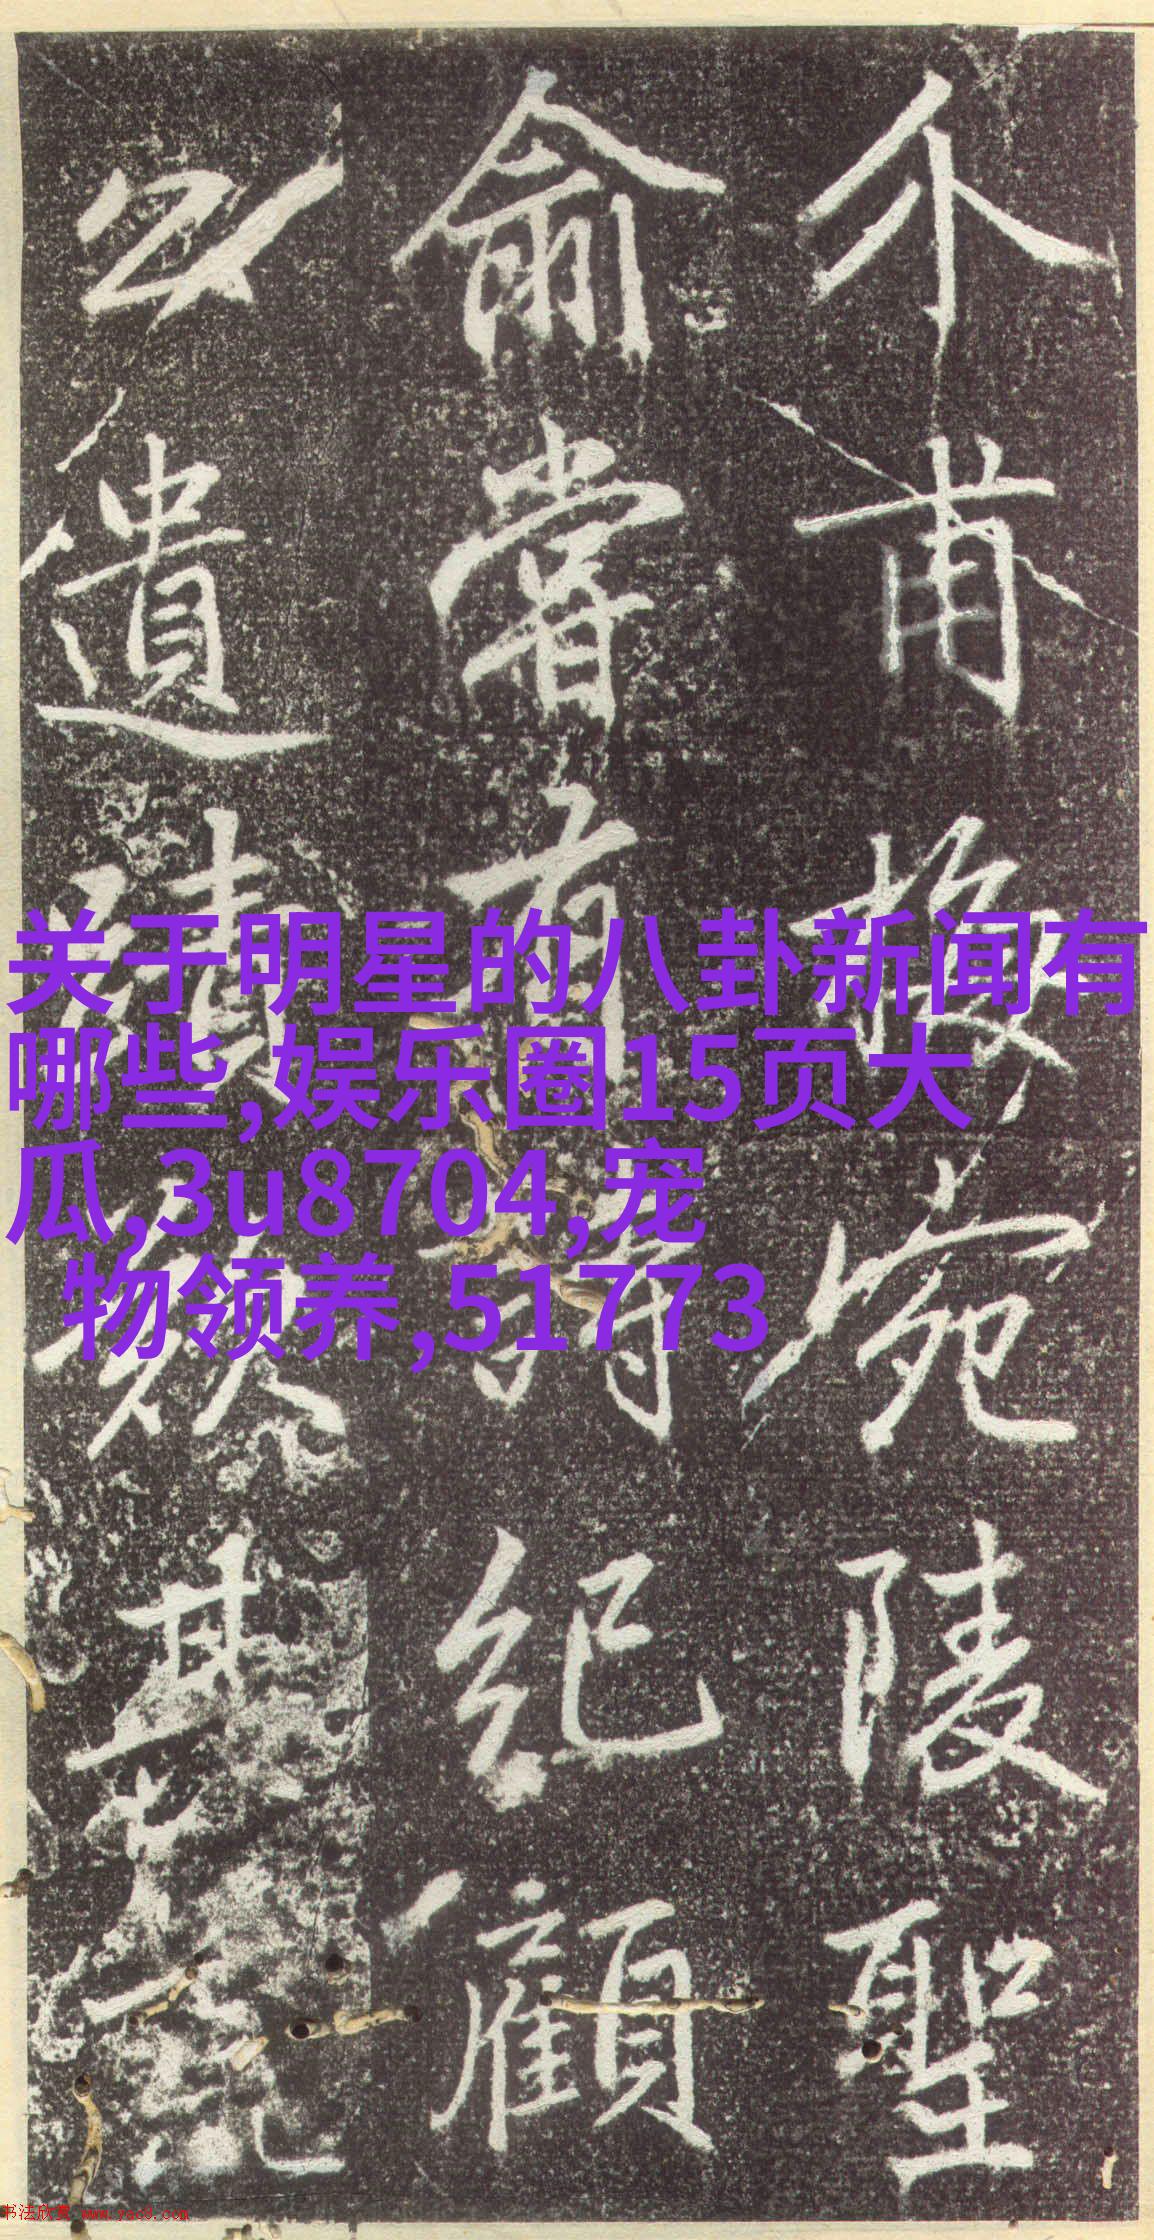 关于明星的八卦新闻有
哪些,娱乐圈15页大
瓜,3u8704,宠
物领养,51773
介甫梅宛陵聖
俞嘗有詩紀顧
公遺蹟
书法欣赏 www.yac8.com